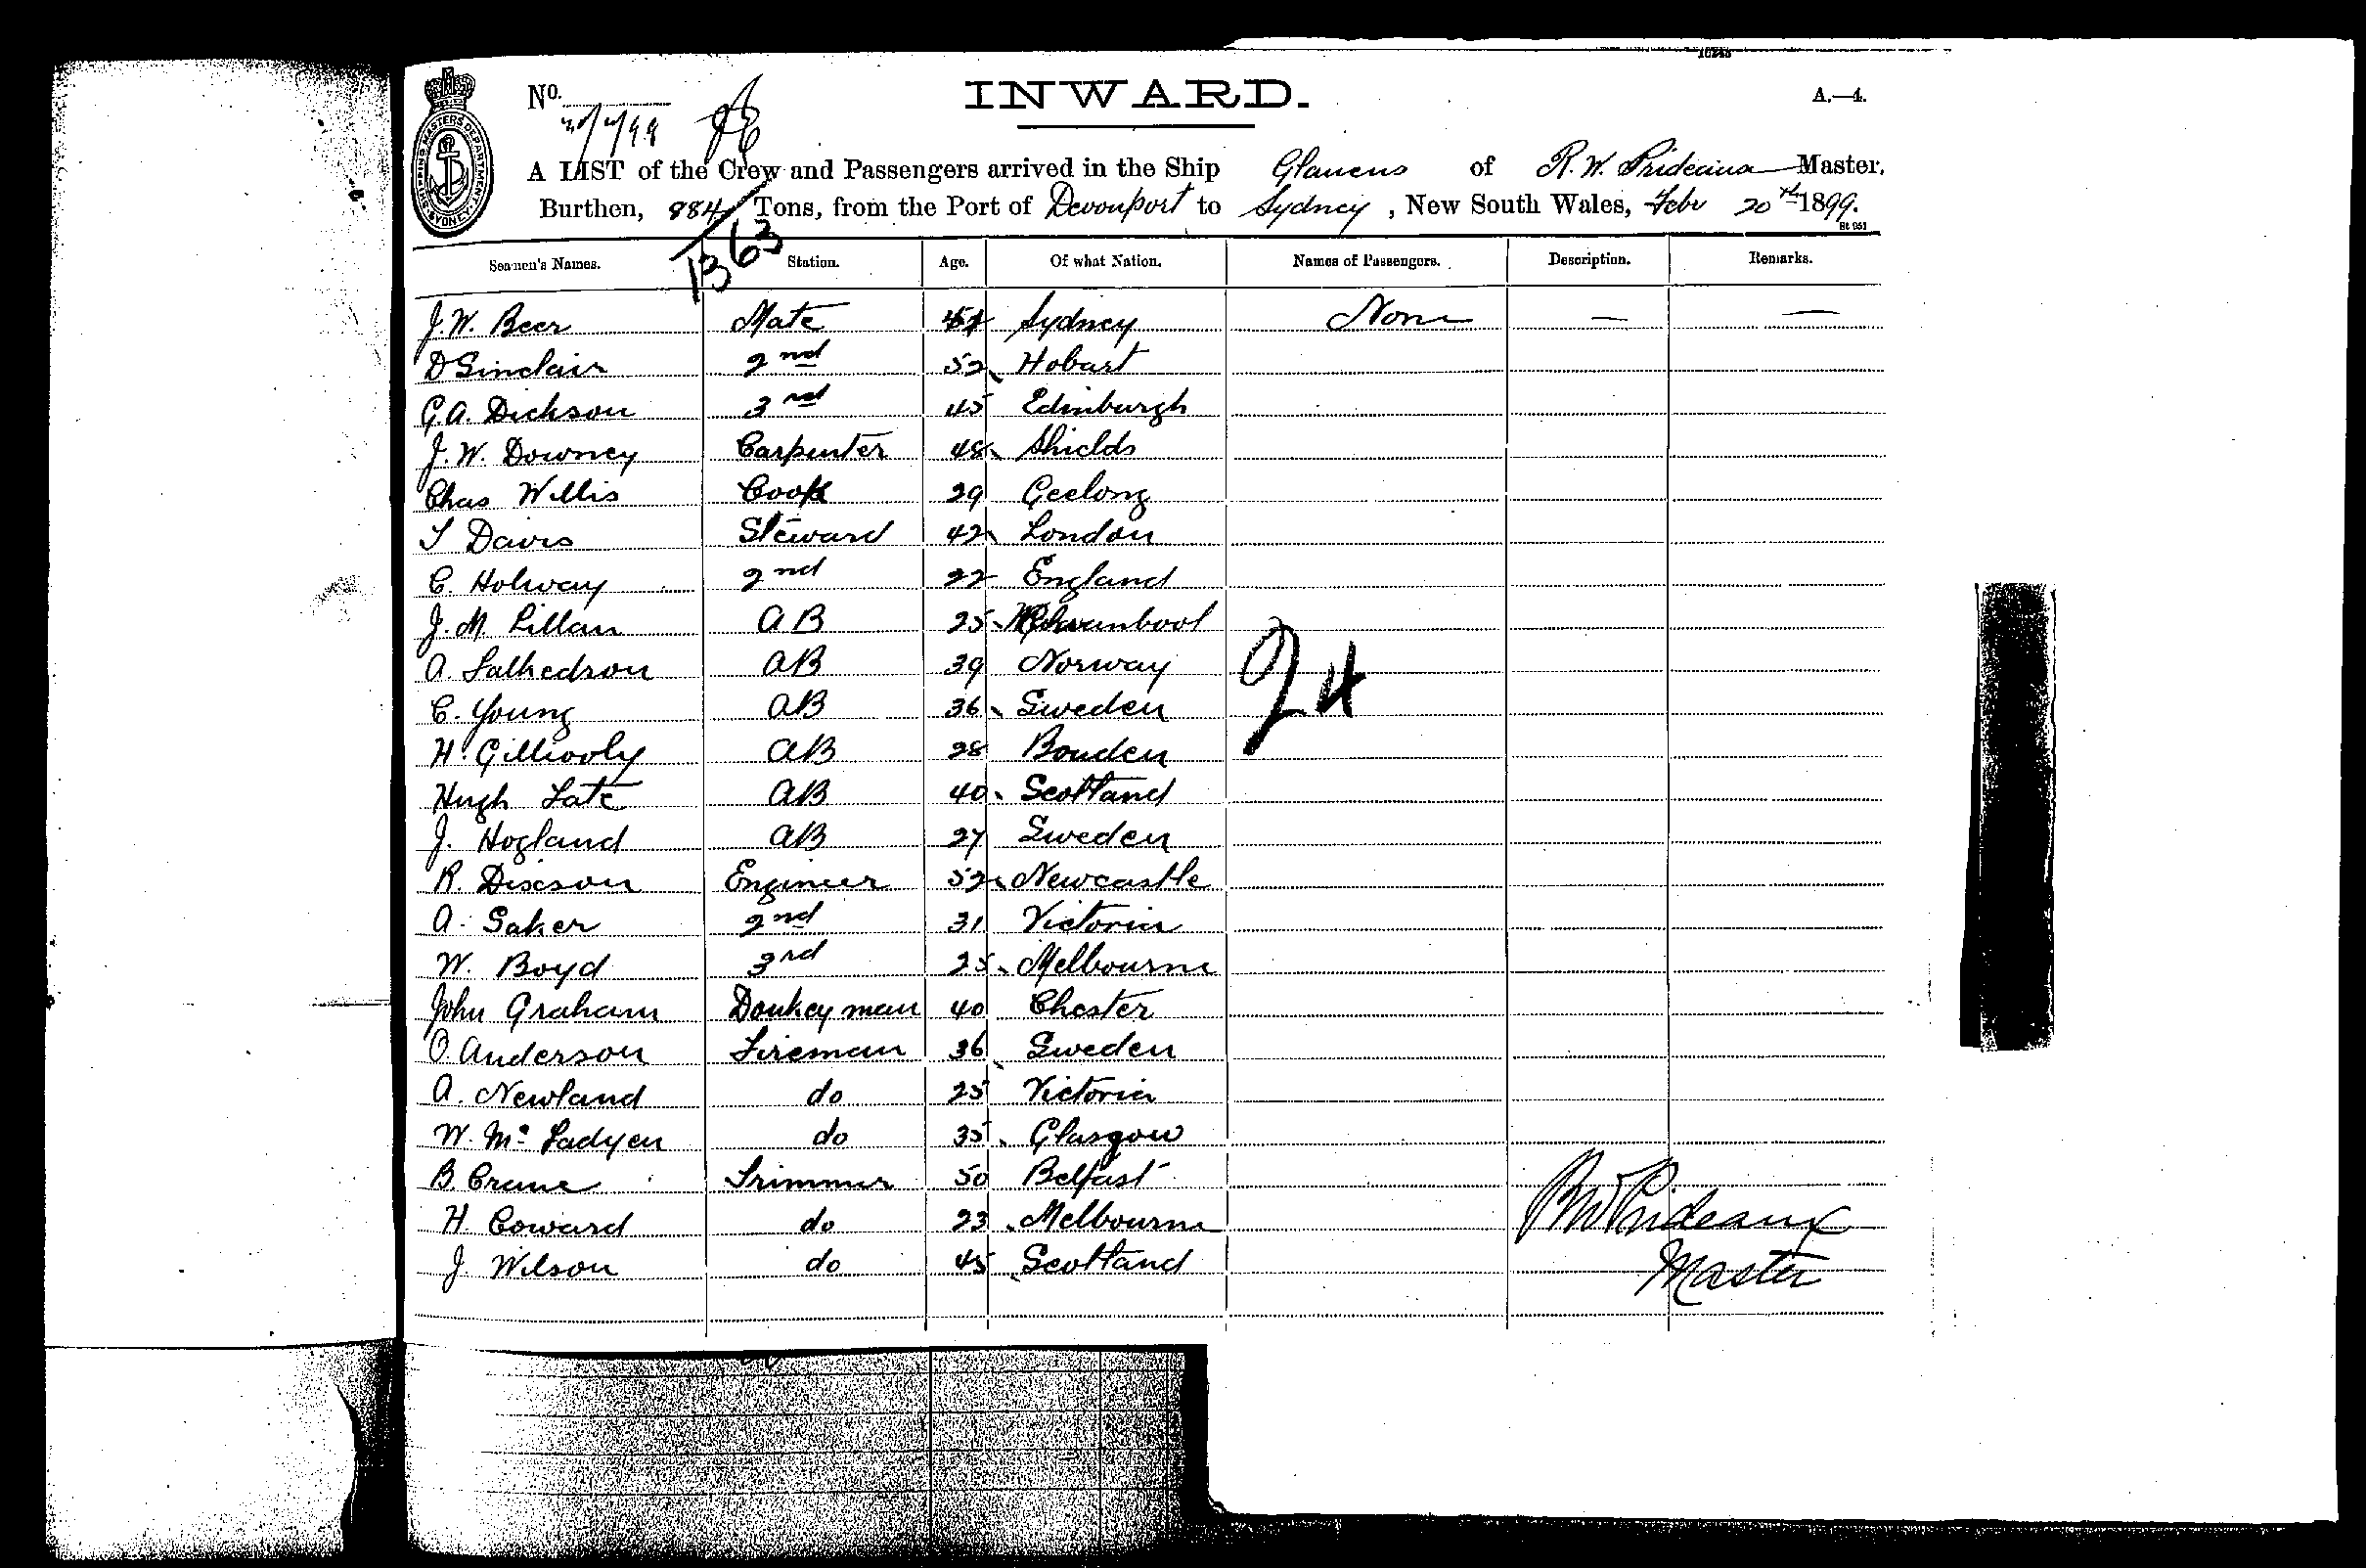 10245
No.
20/2/99
INWARD.
A.—4.
SHIPPING MASTERS DEPARTMENT SYDNEY
A LIST of the Crew and Passengers arrived in the Ship Glaucus of R. W. Prideaux Master,
Burthen, 884/1363 Tons, from the Port of Devonport to Sydney, New South Wales, Feby 20th 1899.
St 951
Seamen's Names. Station. Age. Of what Nation. Names of Passengers. Description. Remarks.
J. W. Beer Mate Sydney None — —
D Sinclair 2nd 52 Hobart
G. A. Dickson 3rd 45 Edinburgh
J. W. Downey Carpenter 48 Shields
Chas Willis Cook 29 Geelong
T Davis Steward 42 London
C. Holway 2nd 22 England
J. McLillan AB 25
A. AB 39 Norway
C. Young AB 36 Sweden
H. Gillooly AB 28 Bowden
Hugh Tate AB 40 Scotland
J. Hogland AB 27 Sweden
R. Dixson Engineer 52 Newcastle
A. Saker 2nd 31 Victoria
W. Boyd 3rd 25 Melbourne
John Graham Donkeyman 40 Chester
O. Anderson Fireman 36 Sweden
A. Newland do 25 Victoria
W. McFadyen do 35 Glasgow
B. Crune Trimmer 50 Belfast
H. Coward do 23 Melbourne
J. Wilson do 45 Scotland
24
RW Prideaux
Master